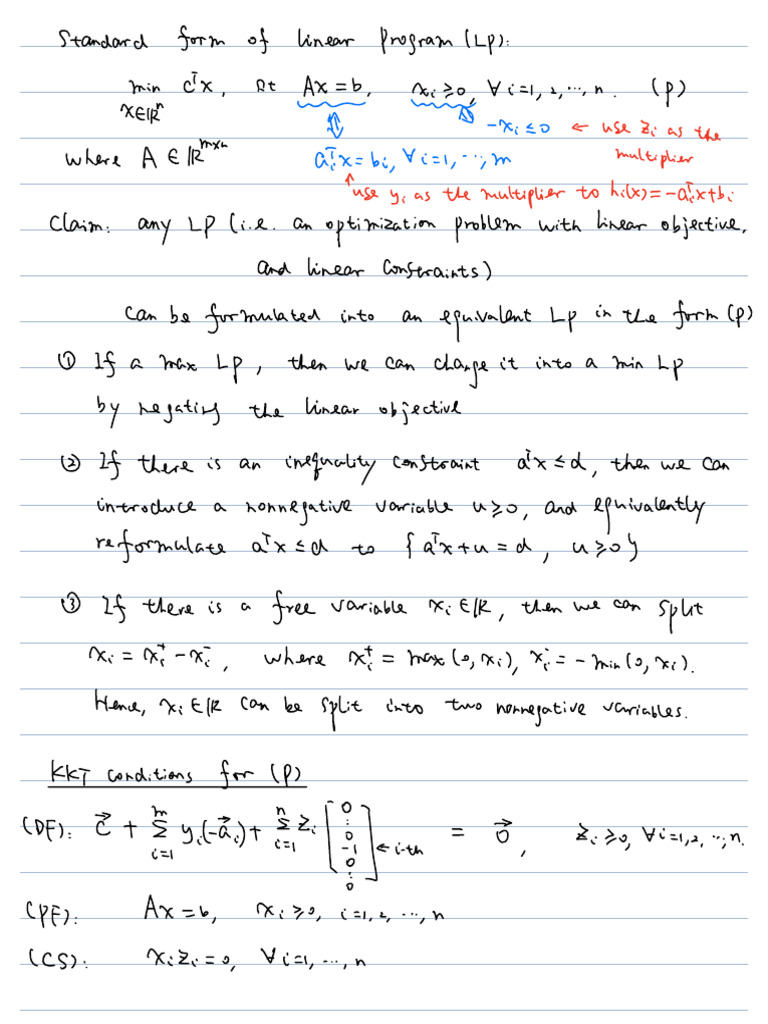 Standard form of linear program (LP):
min cᵀx, st Ax=b, xᵢ≥0, ∀i=1,2,⋯,n. (P)
x∈ℝⁿ
-xᵢ≤0 ← use zᵢ as the
multiplier
where A∈ℝᵐˣⁿ aᵢᵀx=bᵢ, ∀i=1,⋯,m
↑use yᵢ as the multiplier to hᵢ(x)=-aᵢᵀx+bᵢ
Claim: any LP (i.e. an optimization problem with linear objective,
and linear constraints)
can be formulated into an equivalent LP in the form (P)
① If a max LP, then we can change it into a min LP
by negating the linear objective
② If there is an inequality constraint aᵀx≤d, then we can
introduce a nonnegative variable u≥0, and equivalently
reformulate aᵀx≤d to {aᵀx+u=d, u≥0}
③ If there is a free variable xᵢ∈ℝ, then we can split
xᵢ=xᵢ⁺-xᵢ⁻, where xᵢ⁺=max(0,xᵢ), xᵢ⁻=-min(0,xᵢ).
Hence, xᵢ∈ℝ can be split into two nonnegative variables.
KKT conditions for (P)
(DF): c⃗ + Σᵢ₌₁ᵐ yᵢ(-a⃗ᵢ) + Σᵢ₌₁ⁿ zᵢ [0 ⋮ 0 -1 0 ⋮ 0] ← i-th = 0⃗, zᵢ≥0, ∀i=1,2,⋯,n.
(PF): Ax=b, xᵢ≥0, i=1,2,⋯,n
(CS): xᵢzᵢ=0, ∀i=1,⋯,n